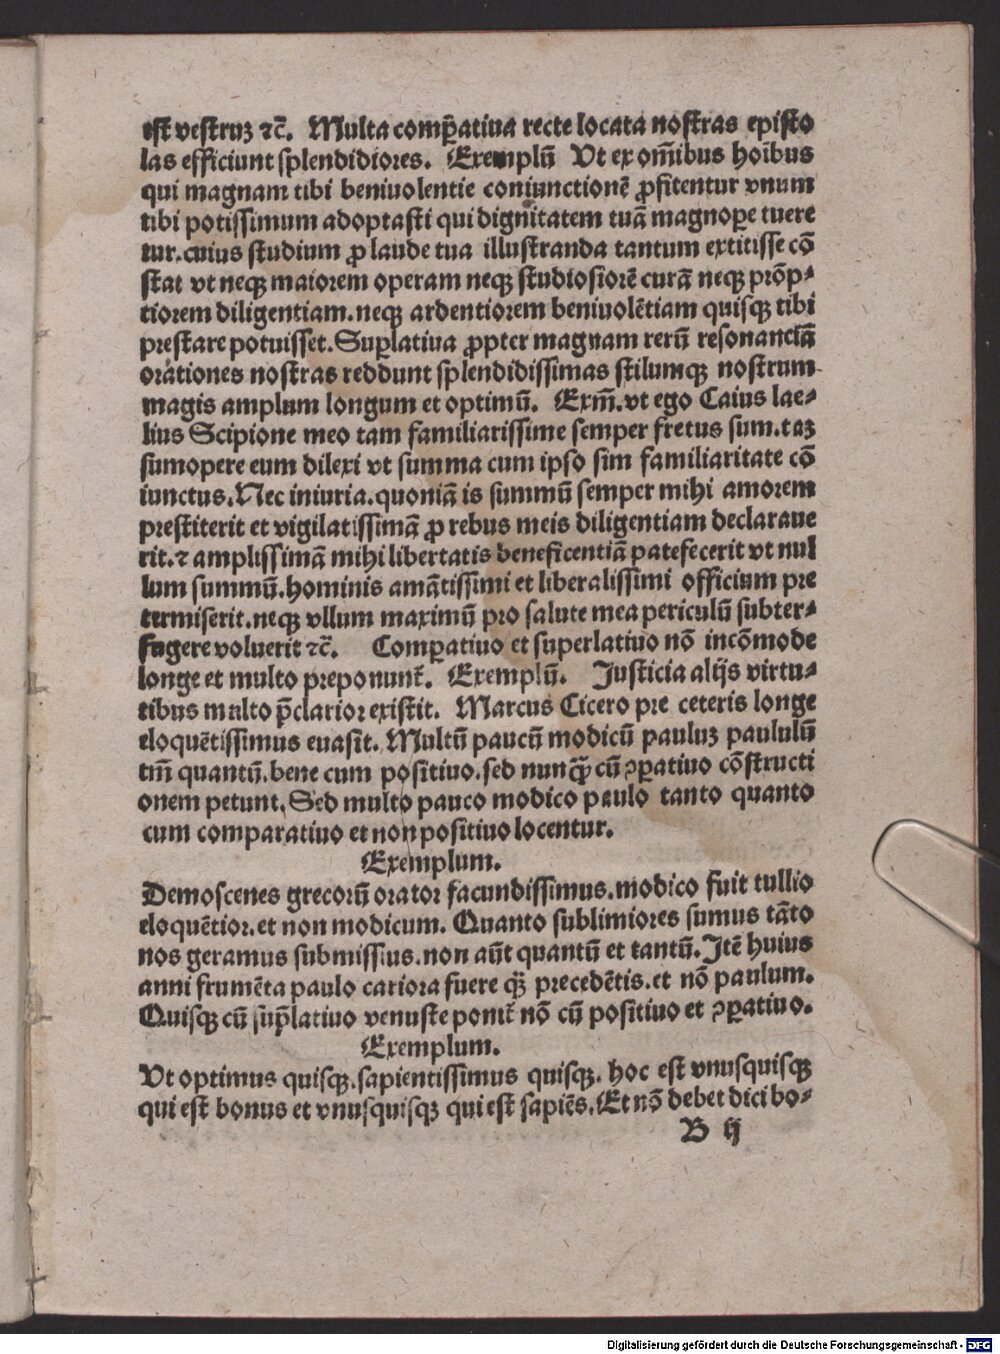 est vestruʒ ⁊c̃. Multa comp̃atiua recte locata nostras episto
las efficiunt splendidiores. Exemplũ Ut ex om̃ibus hoĩbus
qui magnam tibi beniuolentie coniunctionẽ ꝓfitentur vnum
tibi potissimum adoptasti qui dignitatem tuã magnoꝑe tuere
tur.cuius studium ꝓ laude tua illustranda tantum extitisse cõ
stat vt neqꝫ maiorem operam neqꝫ studiosiorẽ curã neqꝫ prõp⸗
tiorem diligentiam.neqꝫ ardentiorem beniuolẽtiam quisqꝫ tibi
prestare potuisset.Suꝑlatiua ꝓpter magnam rerũ resonanciã
orationes nostras reddunt splendidissimas stilumqꝫ nostrum
magis amplum longum et optimũ. Exm̃.vt ego Caius lae⸗
lius Scipione meo tam familiarissime semper fretus sum.taʒ
sumopere eum dilexi vt summa cum ipso sim familiaritate cõ
iunctus.Nec iniuria.quoniã is summũ semper mihi amorem
prestiterit et vigilatissimã ꝓ rebus meis diligentiam declaraue
rit.⁊ amplissimã mihi libertatis beneficentiã patefecerit vt nul
lum summũ.hominis amãtissimi et liberalissimi officium pre
termiserit.neqꝫ vllum maximũ pro salute mea periculũ subter⸗
fugere voluerit ⁊c̃. Comꝑatiuo et superlatiuo nõ incõmode
longe et multo preponunt᷑. Exemplũ. Justicia alijs virtu⸗
tibus multo p̃clarior existit. Marcus Cicero pre ceteris longe
eloquẽtissimus euasit. Multũ paucũ modicũ pauluʒ paululũ
tm̃ quantũ.bene cum positiuo.sed nunꝙ̃ cũ ꝯꝑatiuo cõstructi
onem petunt. Sed multo pauco modico paulo tanto quanto
cum comparatiuo et non positiuo locentur.
Exemplum.
Demoscenes grecorũ orator facundissimus.modico fuit tullio
eloquẽtior.et non modicum. Quanto sublimiores sumus tãto
nos geramus submissius.non aũt quantũ et tantũ.Jtẽ huius
anni frumẽta paulo cariora fuere q̃ꝫ precedẽtis.et nõ paulum.
Quisqꝫ cũ sup̃latiuo venuste ponit᷑ nõ cũ positiuo et ꝯꝑatiuo.
Exemplum.
Ut optimus quisqꝫ.sapientissimus quisqꝫ. hoc est vnusquisqꝫ
qui est bonus et vnusquisqꝫ qui est sapiẽs. Et nõ debet dici bo⸗
B ij
Digitalisierung gefördert durch die Deutsche Forschungsgemeinschaft - DFG